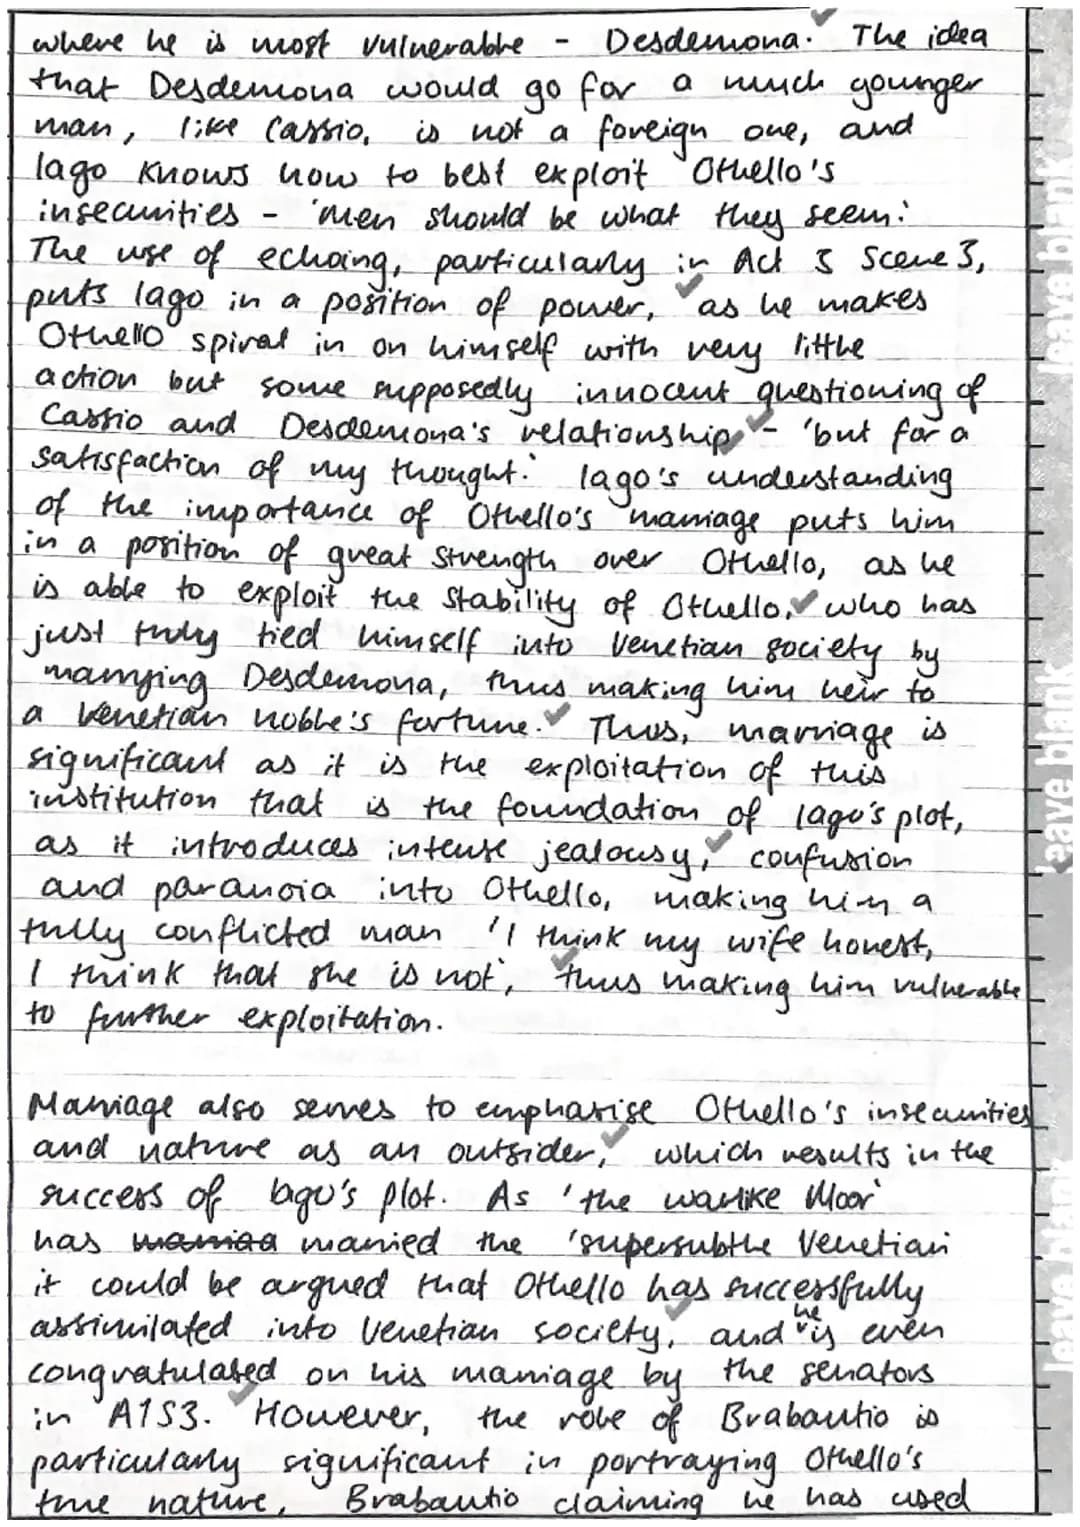 where he is most vulnerable - Desdemona. The idea
that Desdemona would go for a much younger
man, like Cassio, is not a foreign one, and
Iago knows how to best exploit Othello's
insecurities - 'men should be what they seem'.
The use of echoing, particularly in Act 3 Scene 3,
puts Iago in a position of power, as he makes
Othello spiral in on himself with very little
action but some supposedly innocent questioning of
Cassio and Desdemona's relationship - 'but for a
satisfaction of my thought.' Iago's understanding
of the importance of Othello's marriage puts him
in a position of great strength over Othello, as he
is able to exploit the stability of Othello, who has
just truly tied himself into Venetian society by
marrying Desdemona, thus making him heir to
a Venetian noble's fortune. Thus, marriage is
significant as it is the exploitation of this
institution that is the foundation of Iago's plot,
as it introduces intense jealousy, confusion
and paranoia into Othello, making him a
fully conflicted man 'I think my wife honest,
I think that she is not', thus making him vulnerable
to further exploitation.
Marriage also serves to emphasise Othello's insecurities
and nature as an outsider, which results in the
success of Iago's plot. As 'the warlike Moor'
has married the 'supersubtle Venetian
it could be argued that Othello has successfully
assimilated into Venetian society, and he is even
congratulated on his marriage by the senators
in A1S3. However, the role of Brabantio is
particularly significant in portraying Othello's
true nature, Brabantio claiming he has used
leave blank
leave blank
leave blank